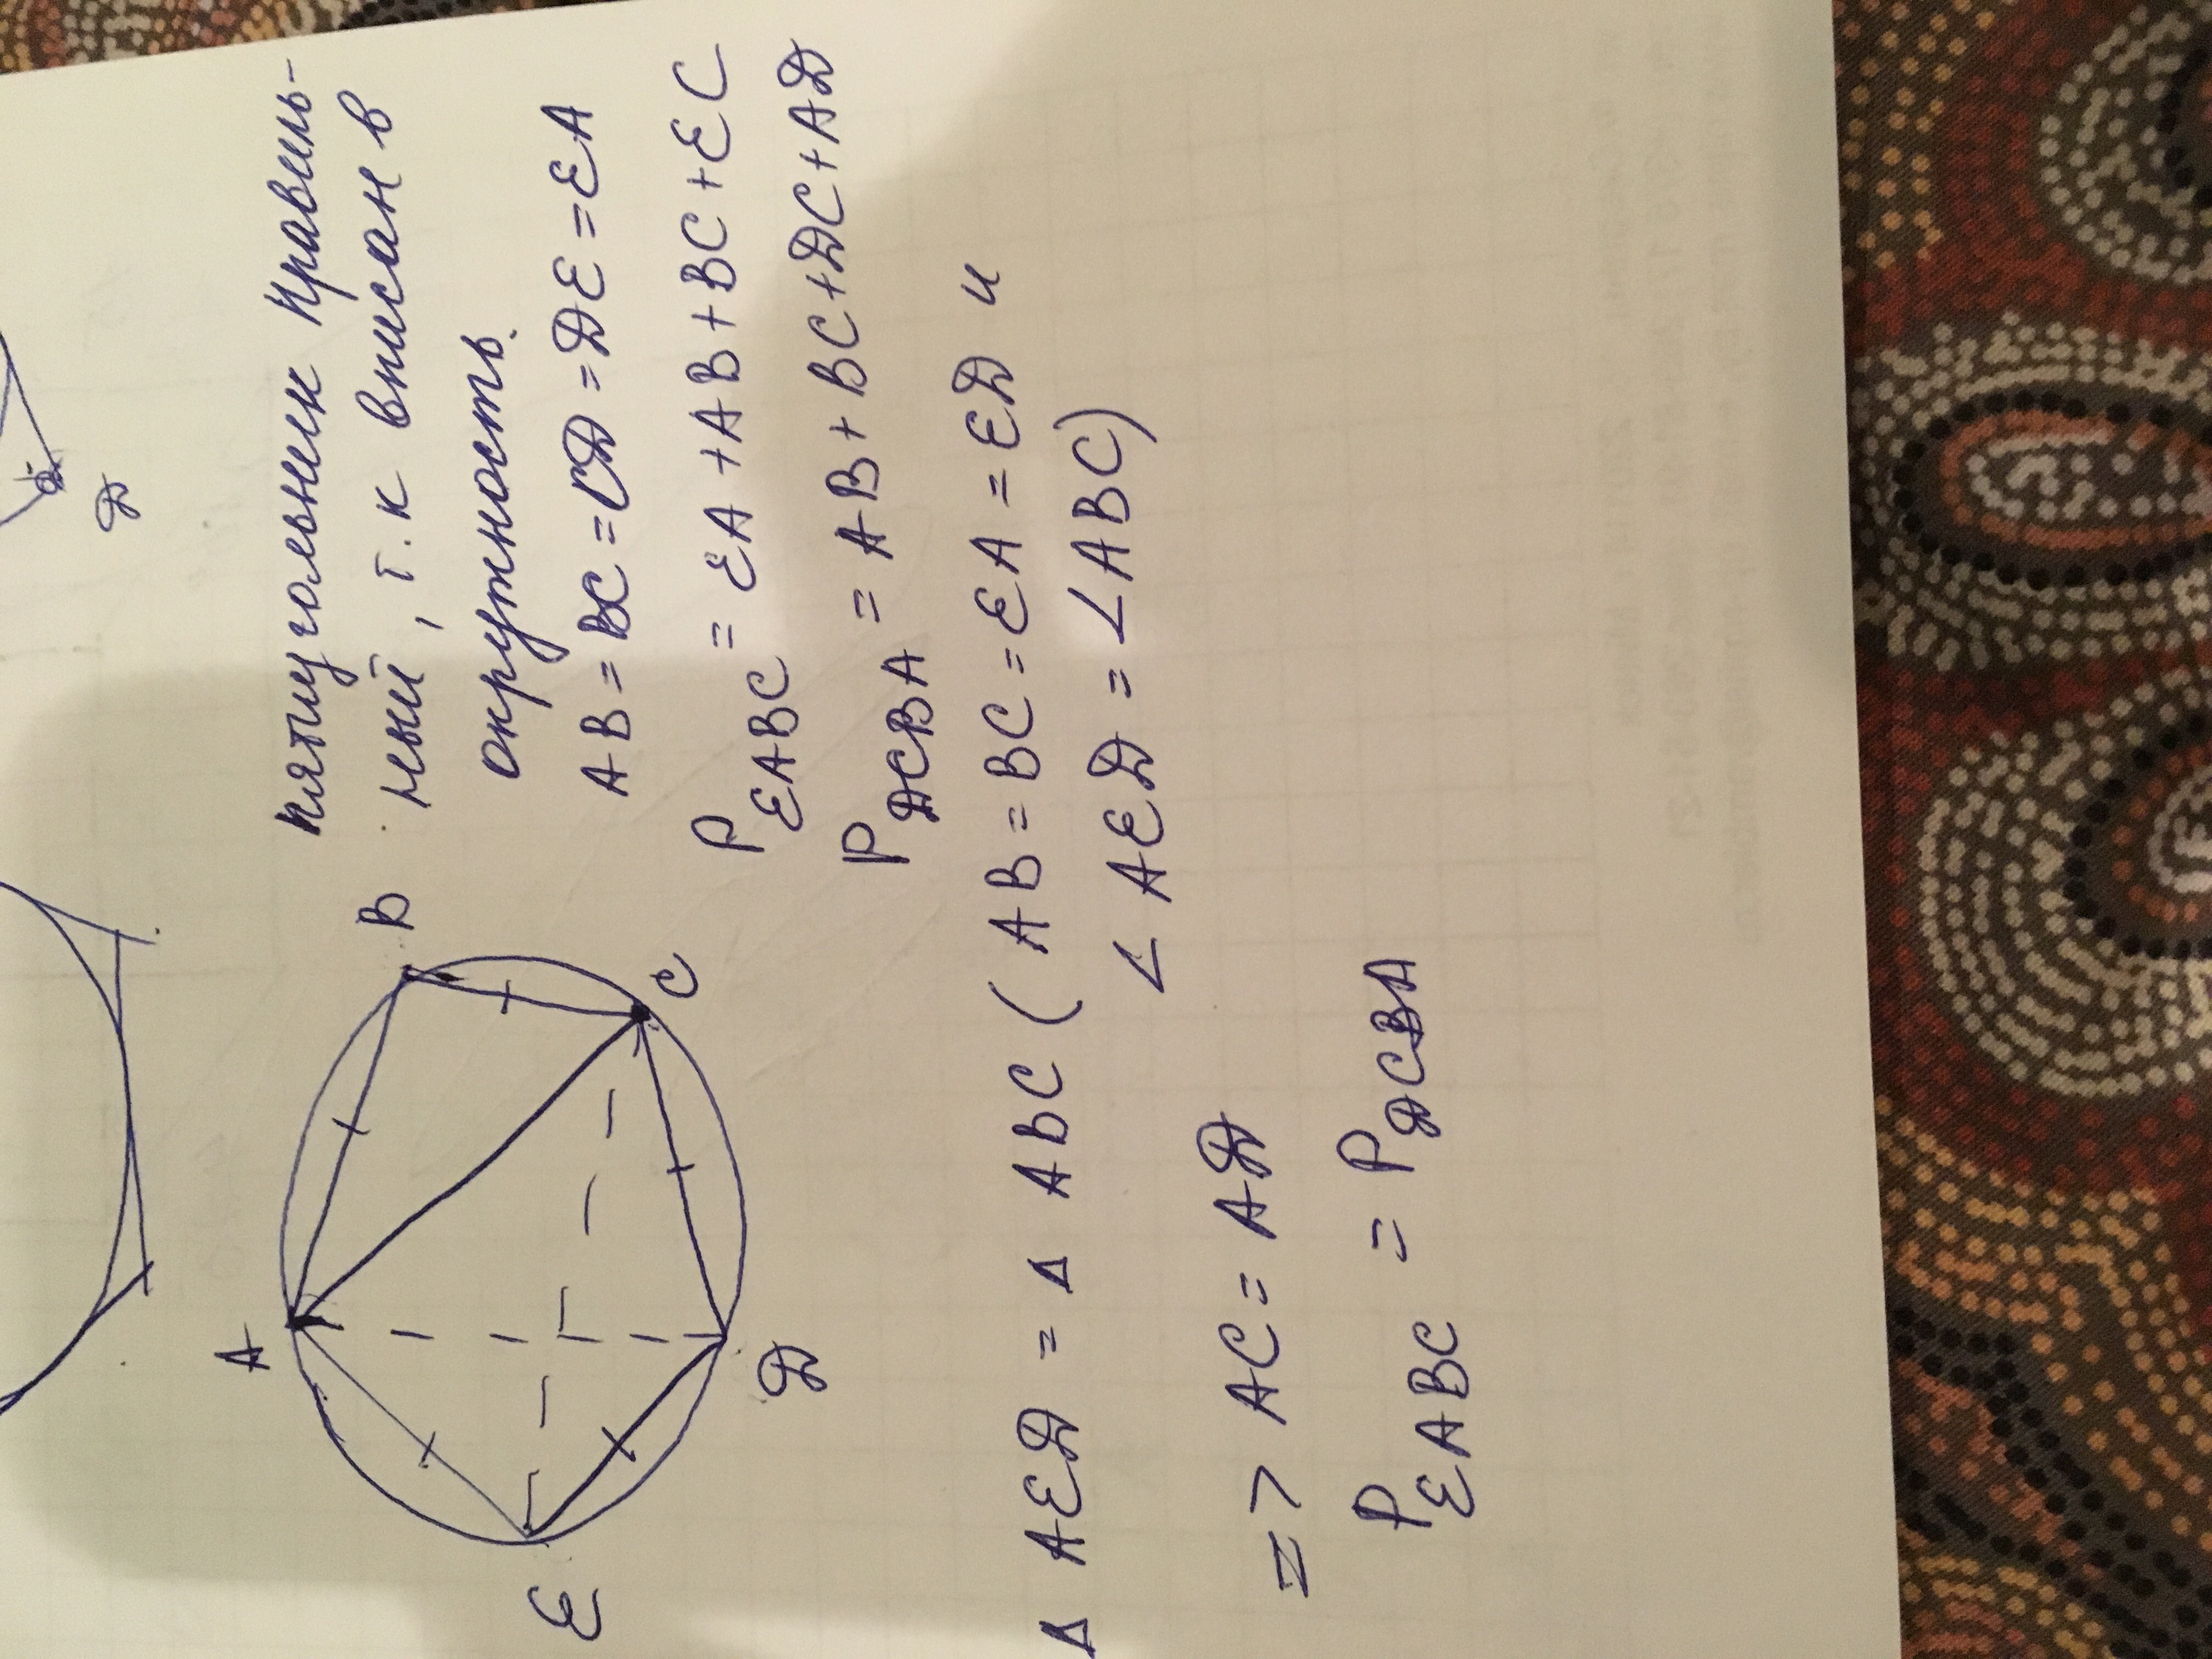 Д
Пятиугольник правиль-
ный, т.к вписан в
окружность.
AB = BC = CД = ДE = EA
P EABC = EA + AB + BC + EC
P ДCBA = AB + BC + ДC + AД
A
B
C
Д
E
Δ AEД = Δ ABC ( AB = BC = EA = EД и
∠ AEД = ∠ ABC)
=> AC = AД
P EABC = P ДCBA